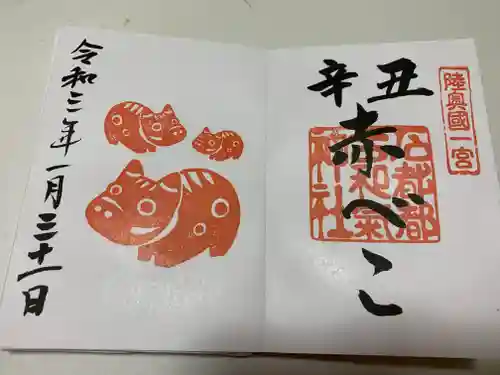 陸奥國一宮
辛丑
赤べこ
古都都
古和氣
神社
令和三年一月三十一日